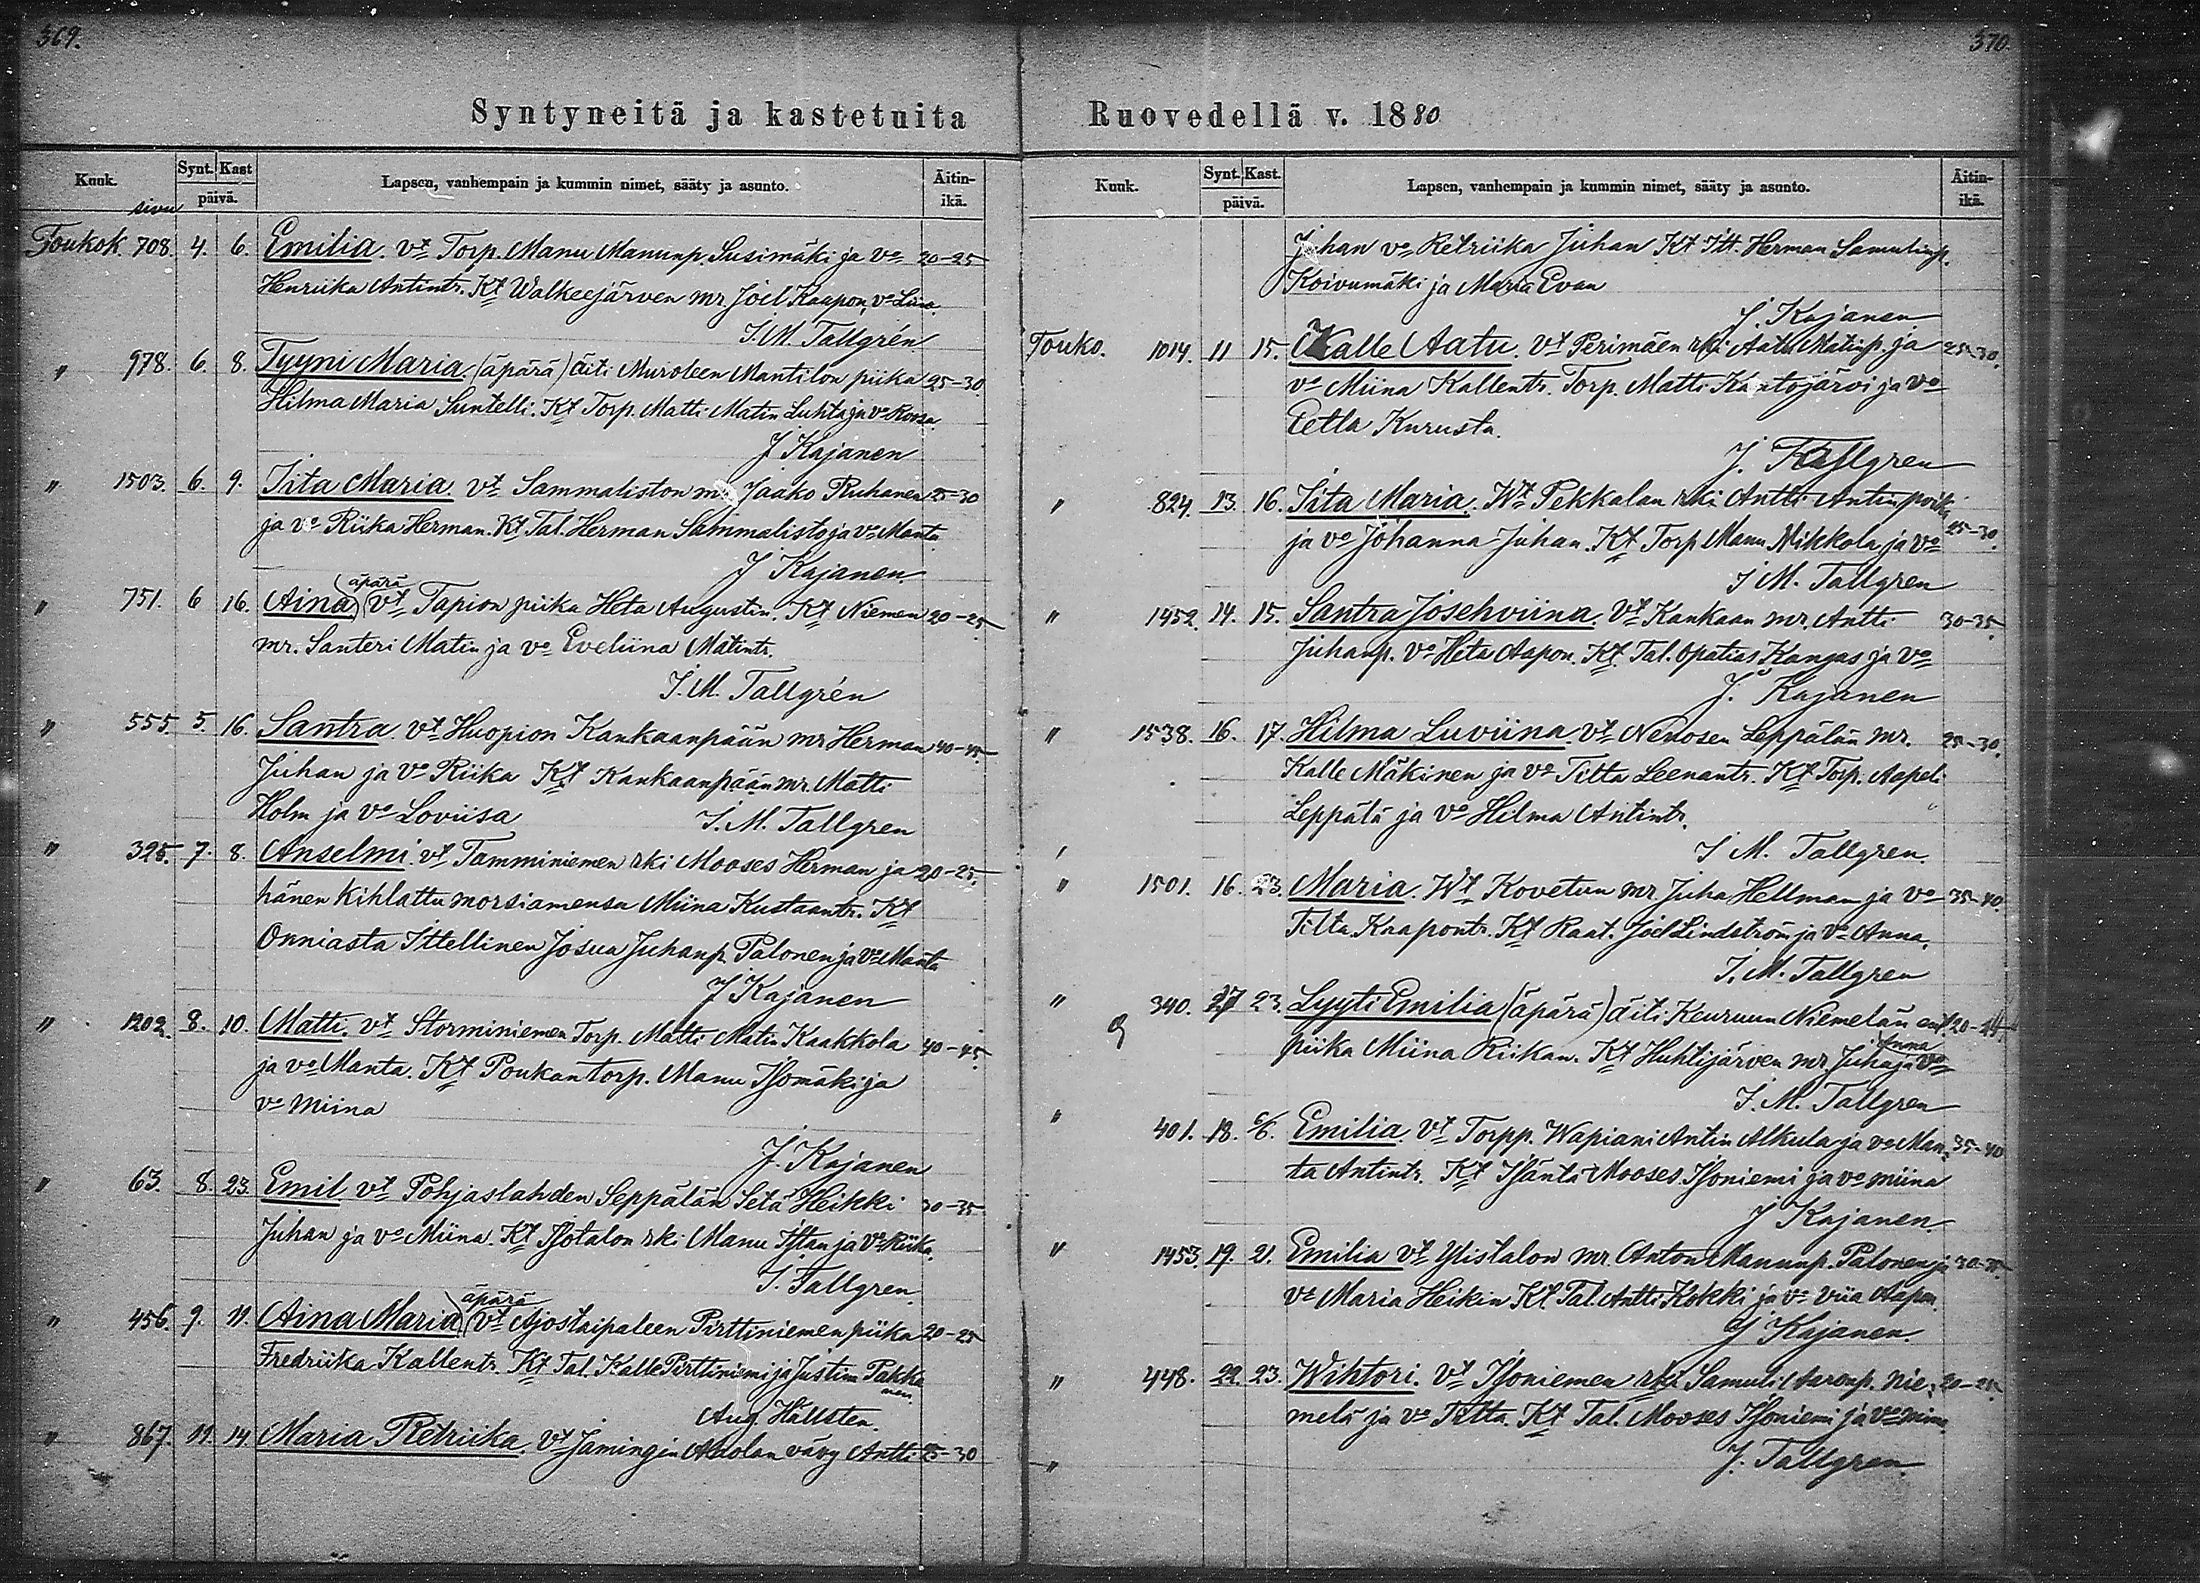 369.
Syntyneitä ja kastetuita
Kuuk. Synt. Kast päivä. Lapsen, vanhempain ja kummin nimet, sääty ja asunto. Äitin-ikä.
sivu
Toukok. 708. 4. 6. Emilia. vt Torp. Manu Manunp. Susimäki ja vo 20-25
Henriika Antintr. Kt Walkeejärven mr Joel Kaapon, vo Liina.
I. M. Tallgrén
" 978. 6. 8. Tyyni Maria. (äpärä) äiti Muroleen Mantilon piika 25-30
Hilma Maria Suntelli. Kt Torp. Matti Matin Luhta ja vo Roosa.
J Kajanen
" 1503. 6. 9. Iita Maria. vt Sammaliston mr Jaako Ruhanen 25-30
ja vo Riika Herman. Kt Tal. Herman Sammalisto ja vo Manta
J Kajanen.
äpärä
" 751. 6 16. Aina (vt Tapion piika Heta Augustin. Kt Niemen 20-25
mr. Santeri Matin ja vo Eveliina Matintr.
I. M. Tallgrén
" 555. 5. 16. Santra. vt Huopion Kankaanpään mr Herman 40-45
Juhan ja vo Riika Kt Kankaanpään mr. Matti
Holm ja vo Loviisa I. M. Tallgren
" 325. 7. 8. Anselmi vt Tamminiemen rki Mooses Herman ja 20-25.
hänen kihlattu morsiamensa Miina Kustaantr. Kt
Onniasta Ittellinen Josua Juhanp. Palonen ja vo Manta
J Kajanen
" 1202. 8. 10. Matti. vt Storminiemen Torp. Matti Matin Kaakkola 40-45
ja vo Manta. Kt Poukan torp. Manu Isomäki ja
vo Miina
J. Kajanen
" 63. 8. 23. Emil vt Pohjaslahden Seppälän Setä Heikki 30-35
Juhan ja vo Miina. Kt Isotalon rki Manu Istan ja vo Riika.
I. Tallgren.
äpärä
" 456. 9. 11. Aina Maria (vt Ajostaipaleen Pirttiniemen piika 20-25
Fredriika Kallentr. Kt Tal. Kalle Pirttiniemi ja Justina Pakka
nen
Aug. Hällsten.
" 867. 11. 14. Maria Retriika. vt Jämingin Auolan vävy Antti 25-30
370.
Ruovedellä v. 1880
Kuuk. Synt. Kast. päivä. Lapsen, vanhempain ja kummin nimet, sääty ja asunto. Äitin-ikä.
Juhan vo Retriika Juhan Kt Itt. Herman Samulinp.
Koivumäki ja Maria Evan
J. Kajanen
Touko. 1014. 11 15. Kalle Aatu. vt Perimäen rki Aatu Matinp. ja 25-30.
vo Miina Kallentr. Torp. Matti Kantojärvi ja vo
Eetla Kurusta.
J. Tallgren
" 824. 13. 16. Iita Maria. Wt Pekkalan rki Antti Antinpoika 25-30.
ja vo Johanna Juhan. Kt Torp Manu Mikkola ja vo
I M. Tallgren
" 1452. 14. 15. Santra Josehviina. Vt Kankaan mr. Antti 30-35
Juhanp. vo Heta Aapon. Kt Tal. Opatias Kangas ja vo
J. Kajanen
" 1538. 16. 17. Hilma Luviina. vt Nenosen Leppälän mr. 25-30.
Kalle Mäkinen ja vo Tilta Leenantr. Kt Torp. Aapeli
Leppälä ja vo Hilma Antintr.
I M. Tallgren.
" 1501. 16. 23. Maria. Wt Kovetun mr. Juha Hellman ja vo 35-40.
Tilta Kaapontr. Kt Raat. Joel Lindström ja vo Anna.
I. M. Tallgren
" 340. 17 23. Lyyti Emilia (äpärä) äiti Keuruun Niemelän ent. 20-24
Anna
piika Miina Riikan. Kt Huhtijärven mr Juha ja vo
I. M. Tallgren
" 401. 18. 6/6. Emilia. vt Torpp. Wapiani Antin Alkula ja vo Man- 35-40
ta Antintr. Kt Isäntä Mooses Isoniemi ja vo miina
J Kajanen.
" 1453. 19. 21. Emilia vt Ylistalon mr. Anton Manunp. Palonen ja 30-35.
vo Maria Heikin Kt Tal. Antti Kokki ja vo viia Aapon.
J Kajanen.
" 448. 22. 23. Wihtori. vt Isoniemen rki Samuli Aaronp. Nie- 20-25
melä ja vo Tilta. Kt Tal. Mooses Isoniemi ja vo miina
J. Tallgren.
"